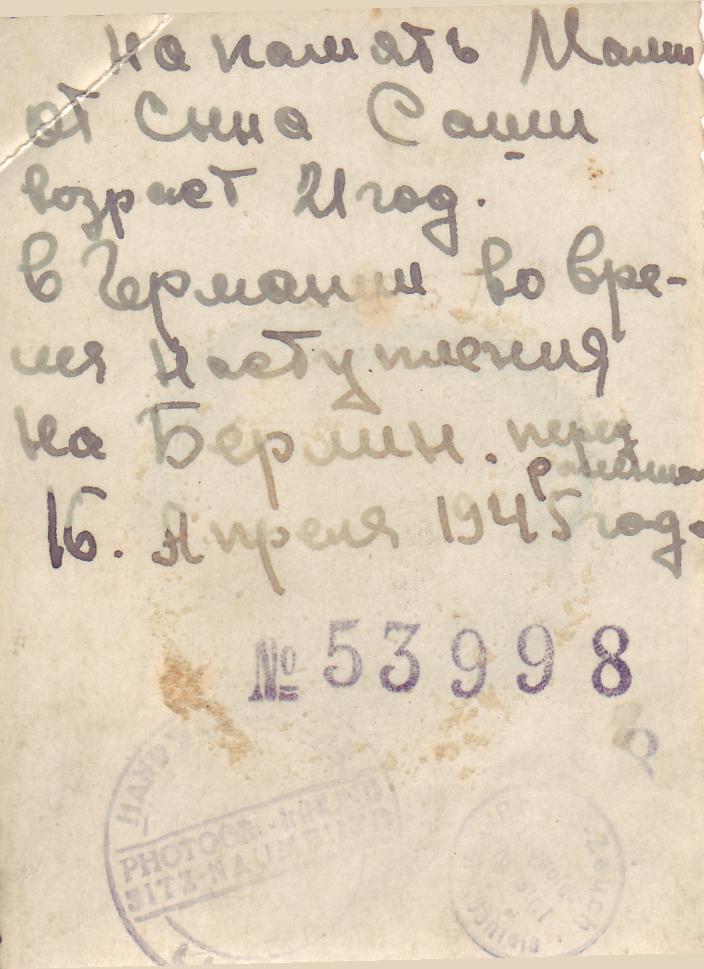 На память Мами
от Сина Саши
возраст 21 год.
в Германии во вре-
мя наступления
на Берлин. перед
ранением
16. Апреля 1945 год.
№ 53998
HAND
PHOTOGR.-INNUNG
SITZ-NAUMBURG
Zeuch